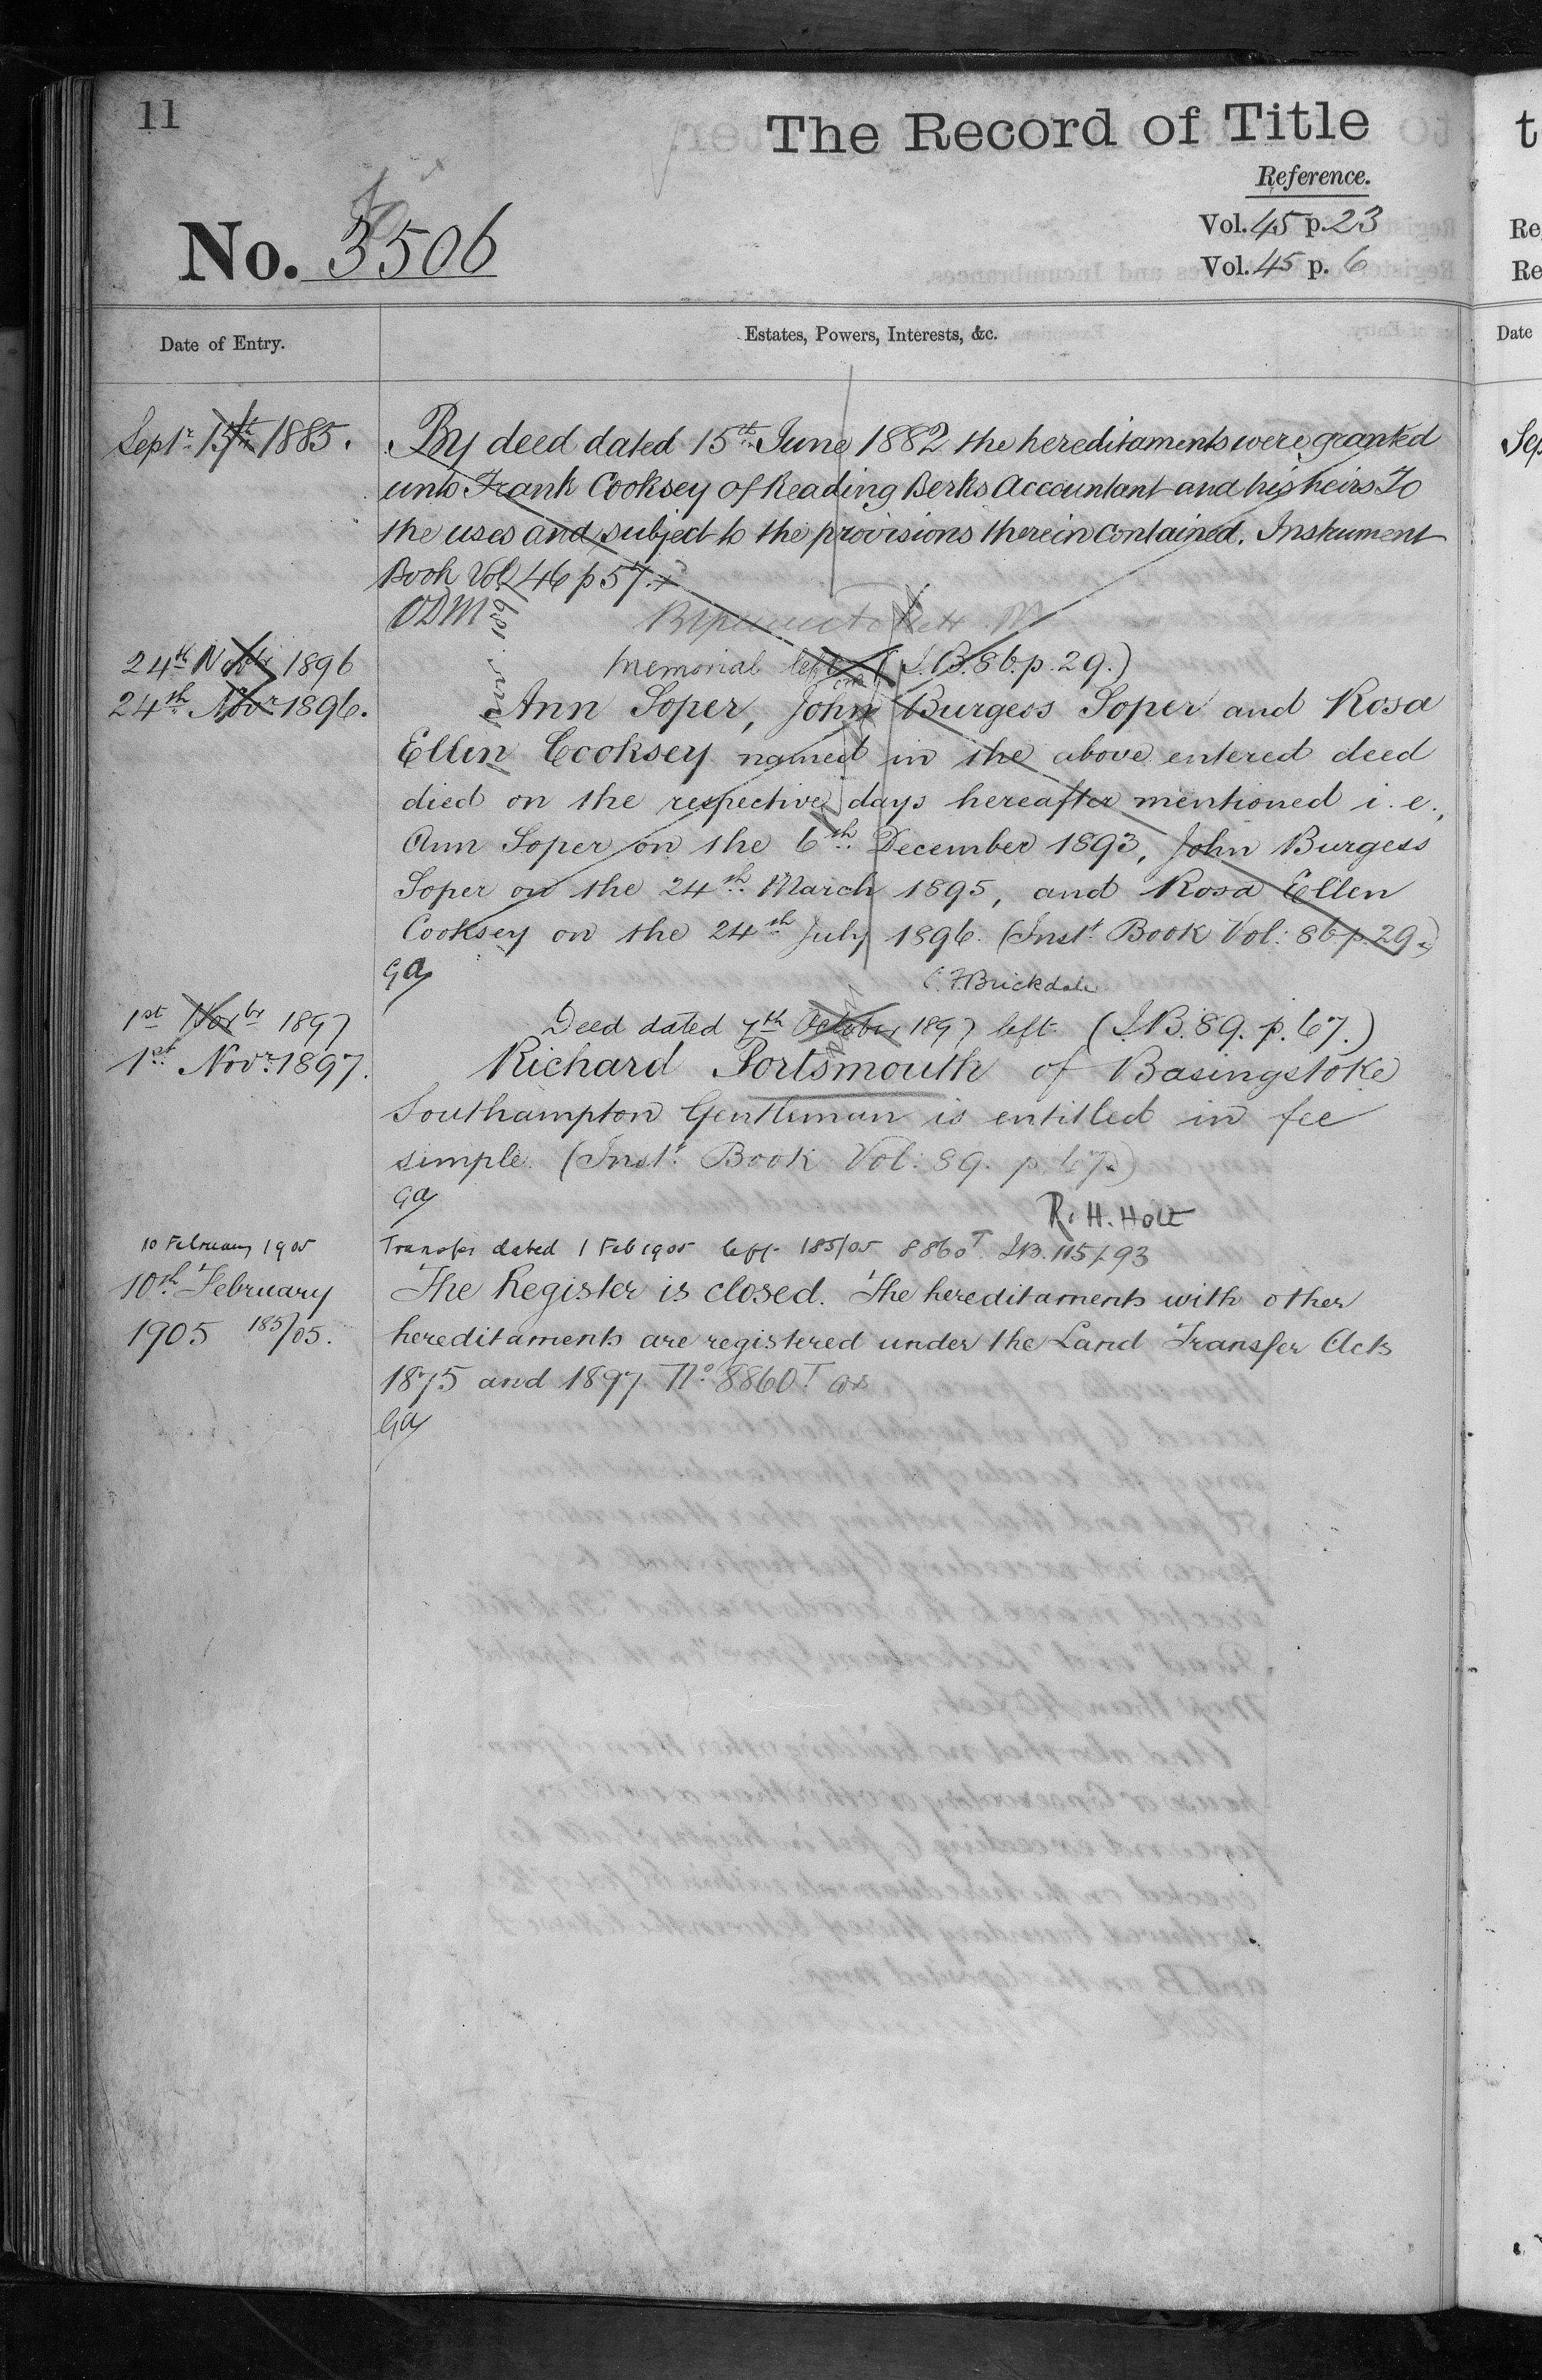 11
The Record of Title
Reference.
Vol. 45 p. 23
No. 3506
Vol. 45 p. 6
Date of Entry.
Estates, Powers, Interests, &c.
Septr. 15th 1885.
By deed dated 15th June 1882 the hereditaments were granted
unto Frank Cooksey of Reading Berks Accountant and his heirs To
the uses and subject to the provisions therein contained. Instrument
Book Vol 46 p 57.
ODM
24th Novbr 1896
Memorial left (I.B. 86. p. 29.)
24th Novr. 1896.
Ann Soper, John Burgess Soper and Rosa
Ellen Cooksey named in the above entered deed
died on the respective days hereafter mentioned i.e.,
Ann Soper on the 6th December 1893, John Burgess
Soper on the 24th March 1895, and Rosa Ellen
Cooksey on the 24th July 1896. (Inst. Book Vol: 86 p. 29.)
Ga
C. F. Brickdale
1st Novbr 1897
Deed dated 7th October 1897 left. (I.B. 89. p. 67.)
1st Novr. 1897.
Richard Portsmouth of Basingstoke
Southampton Gentleman is entitled in fee
simple. (Inst. Book Vol: 89. p. 67.)
Ga
R. H. Holt
10 February 1905
Transfer dated 1 Feb 1905 left 185/05 8860T. I.B. 115/93
10th February
The Register is closed. The hereditaments with other
1905 185/05.
hereditaments are registered under the Land Transfer Acts
1875 and 1897 No. 8860T
Ga
t
Re
Re
Date
Sep